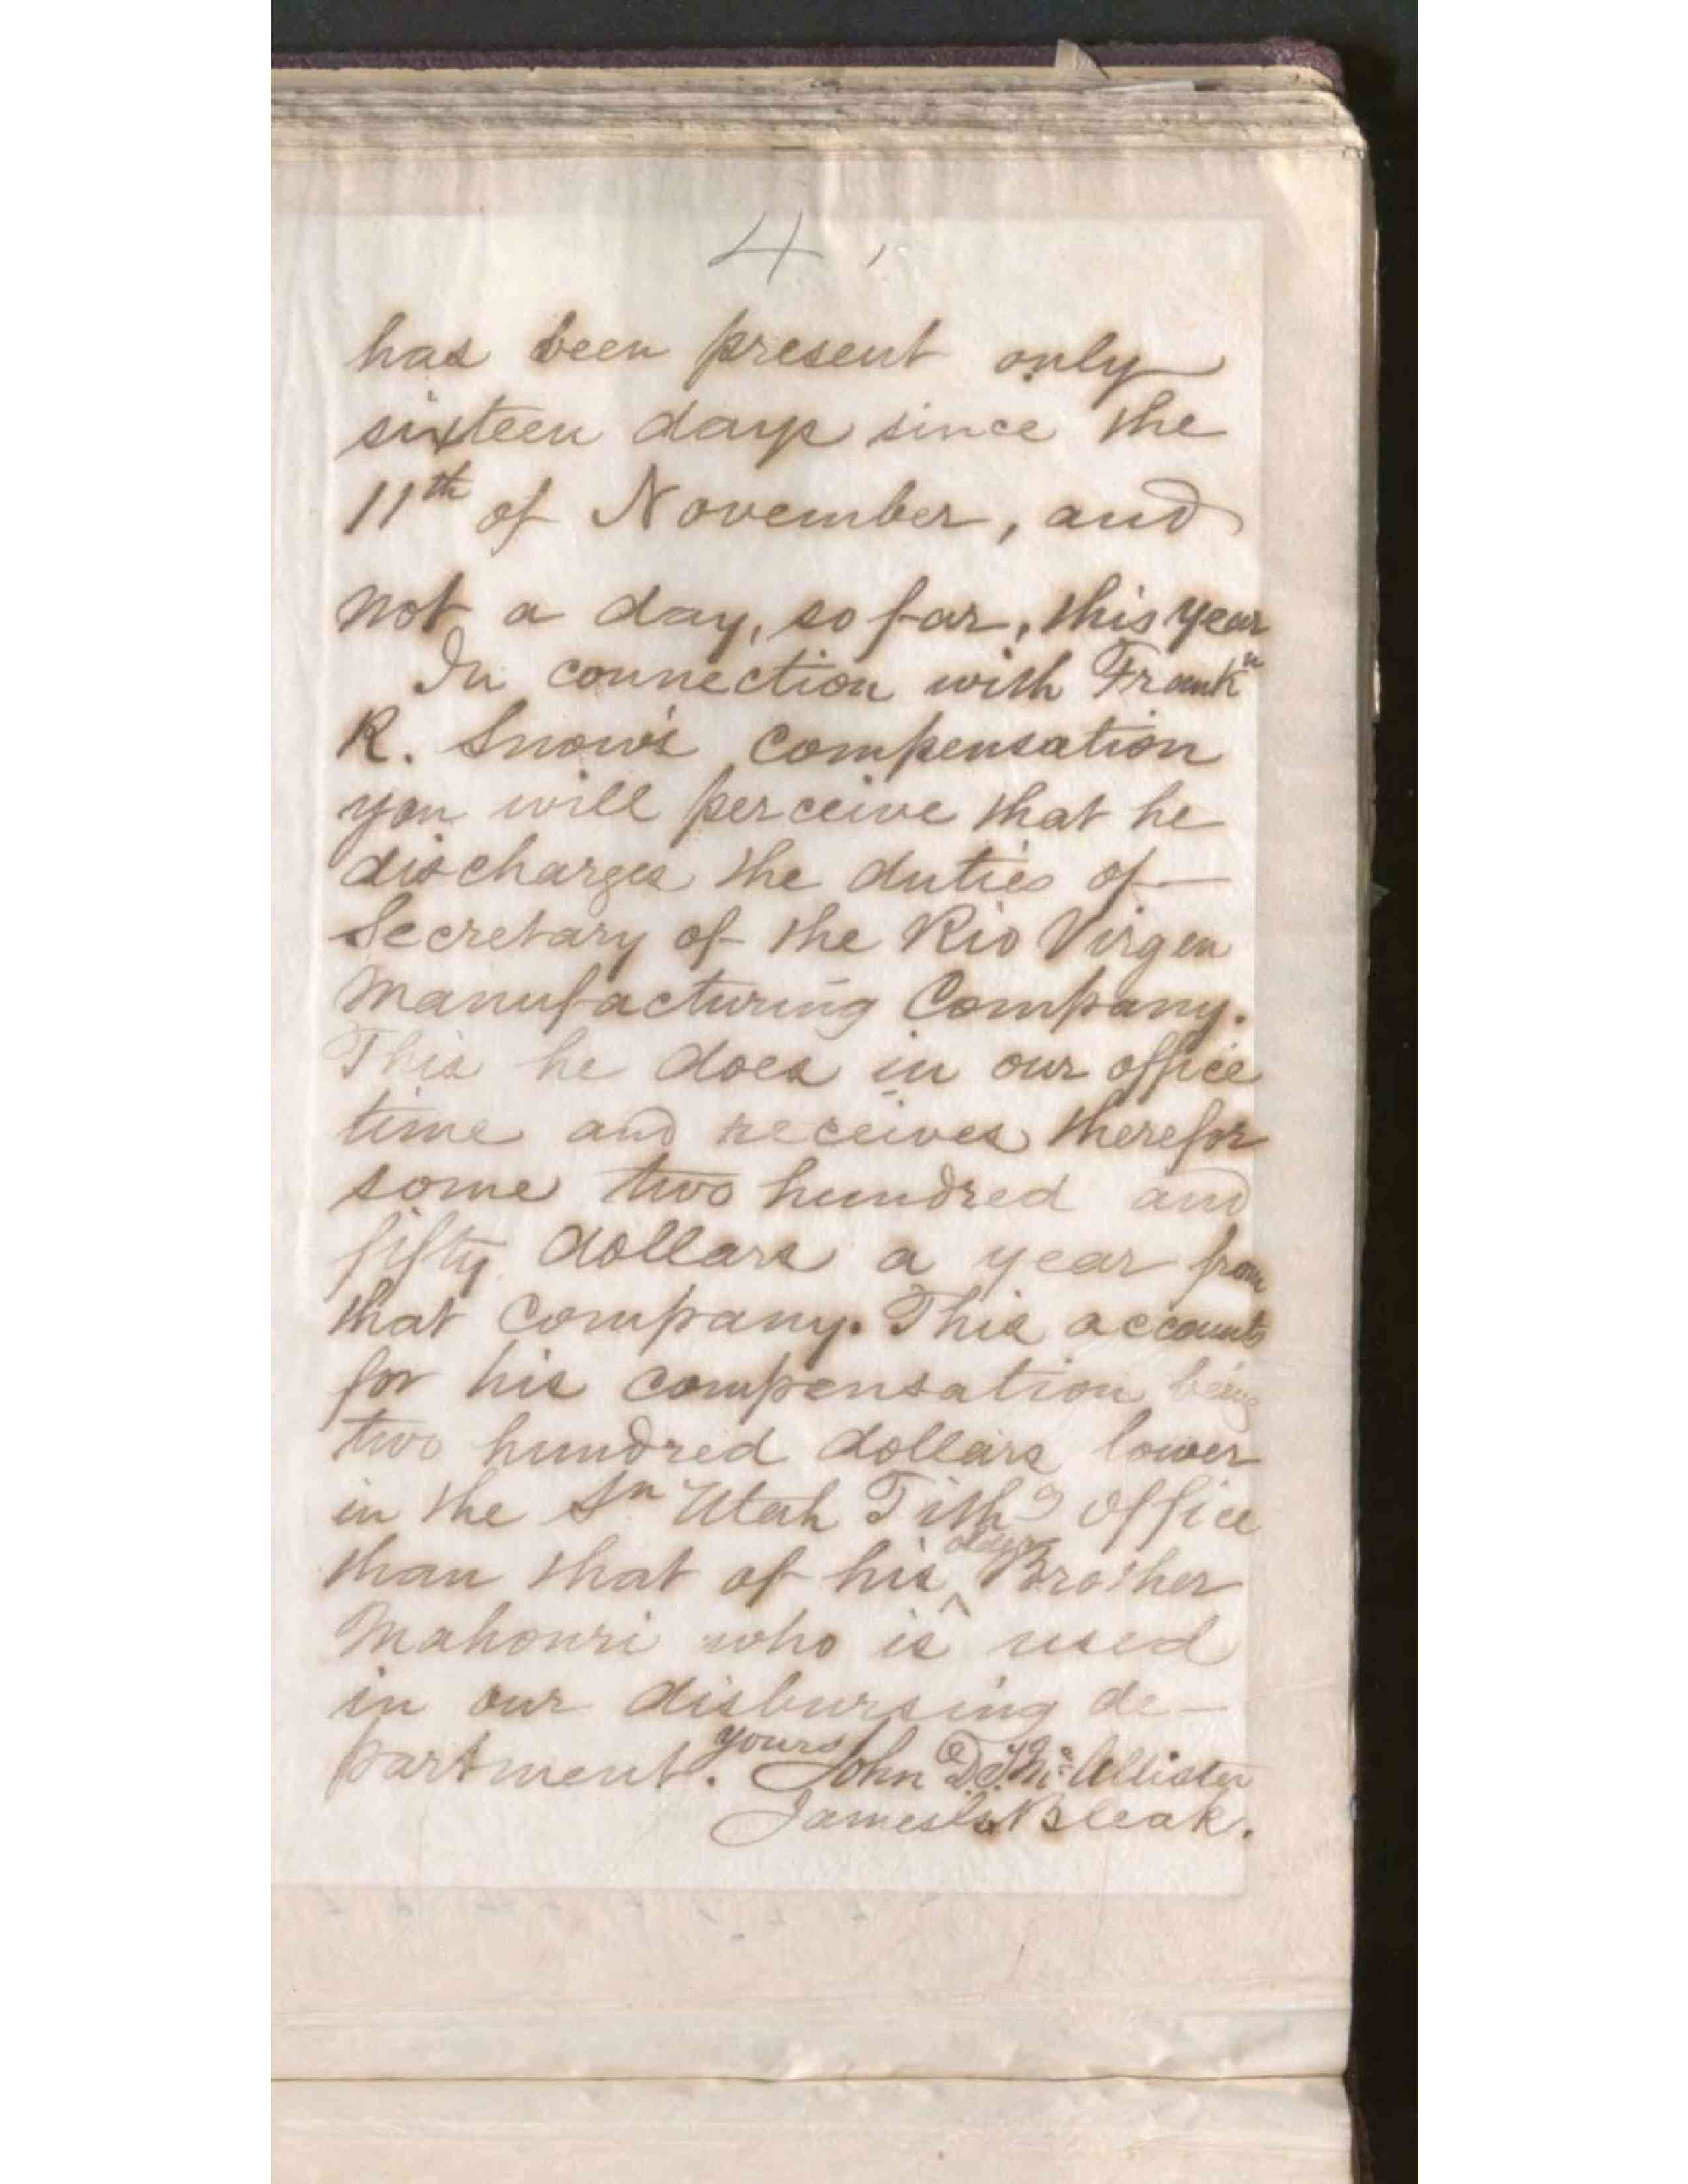 4,
has been present only
sixteen days since the
11th of November, and
not a day, so far, this year
In connection with Frankn
R. Snow's compensation
you will perceive that he
discharges the duties of
Secretary of the Rio Virgen
Manufacturing Company.
This he does in our office
time and receives therefor
some two hundred and
fifty dollars a year from
that company. This accounts
for his compensation being
two hundred dollars lower
in the Sn Utah Tithg office
than that of his ^ older Brother
Mahonri who is used
in our disbursing de-
partment. yours John D. T. McAllister
James G. Bleak.